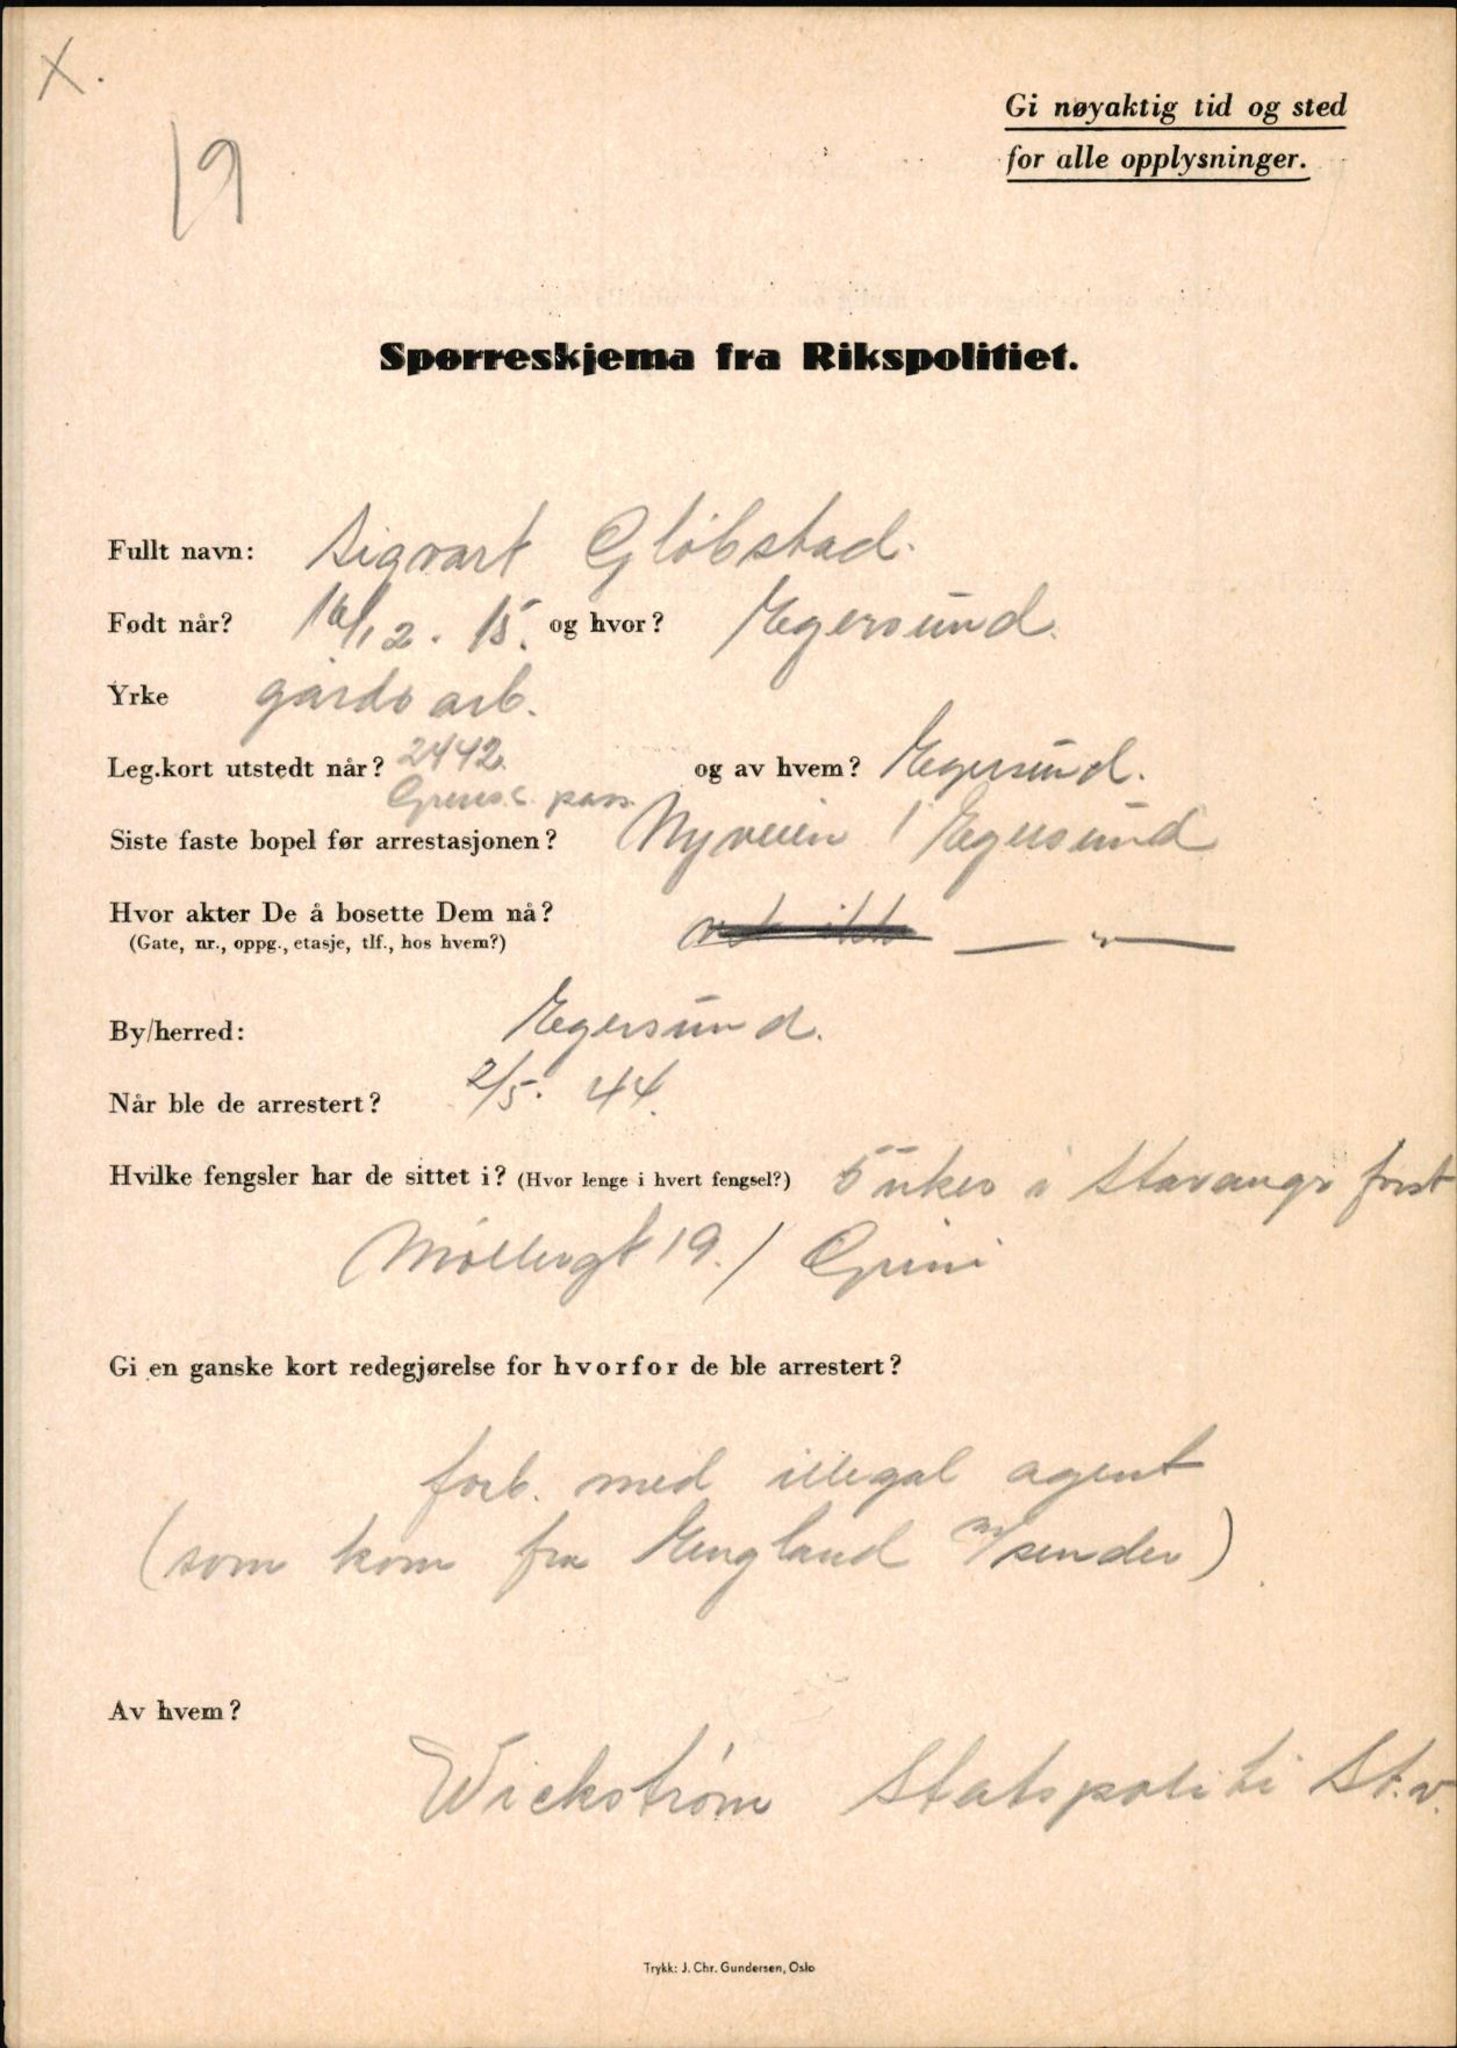 X.
19
Gi nøyaktig tid og sted
for alle opplysninger.
Spørreskjema fra Rikspolitiet.
Fullt navn: Sigvart Gløbstad.
Født når? 16/12. 15. og hvor? Egersund.
Yrke gårdsarb.
Leg.kort utstedt når? 2442. og av hvem? Egersund.
Grense pass.
Siste faste bopel før arrestasjonen? Nyveien / Egersund
Hvor akter De å bosette Dem nå? vet ikke — " —
(Gate, nr., oppg., etasje, tlf., hos hvem?)
By/herred: Egersund.
Når ble de arrestert? 2/5. 44.
Hvilke fengsler har de sittet i? (Hvor lenge i hvert fengsel?) 5 uker i Stavangr
(Møllergt 19.) Grini
Gi en ganske kort redegjørelse for hvorfor de ble arrestert?
forb. med illegal agent
(som kom fra England m/sender)
Av hvem?
Wickstrøm Statspoliti St.v.
Trykk: J. Chr. Gundersen, Oslo